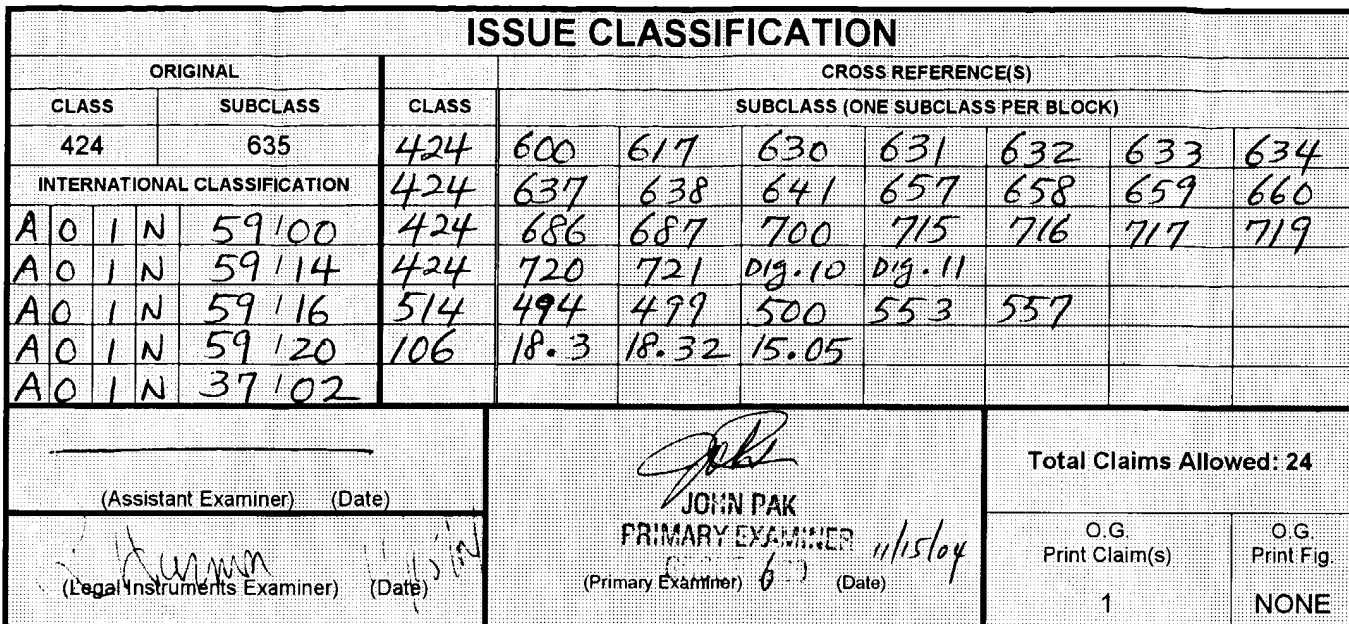 ISSUE CLASSIFICATION
ORIGINAL CROSS REFERENCE(S)
CLASS SUBCLASS CLASS SUBCLASS (ONE SUBCLASS PER BLOCK)
424 635 424 600 617 630 631 632 633 634
INTERNATIONAL CLASSIFICATION 424 637 638 641 657 658 659 660
A 0 1 N 59/00 424 686 687 700 715 716 717 719
A 0 1 N 59/14 424 720 721 Dig.10 Dig.11
A 0 1 N 59/16 514 494 499 500 553 557
A 0 1 N 59/20 106 18.3 18.32 15.05
A 0 1 N 37/02
Total Claims Allowed: 24
(Assistant Examiner) (Date)
JOHN PAK
PRIMARY EXAMINER 11/15/04
(Primary Examiner) (Date)
(Legal Instruments Examiner) (Date)
O.G. Print Claim(s)
O.G. Print Fig.
1 NONE